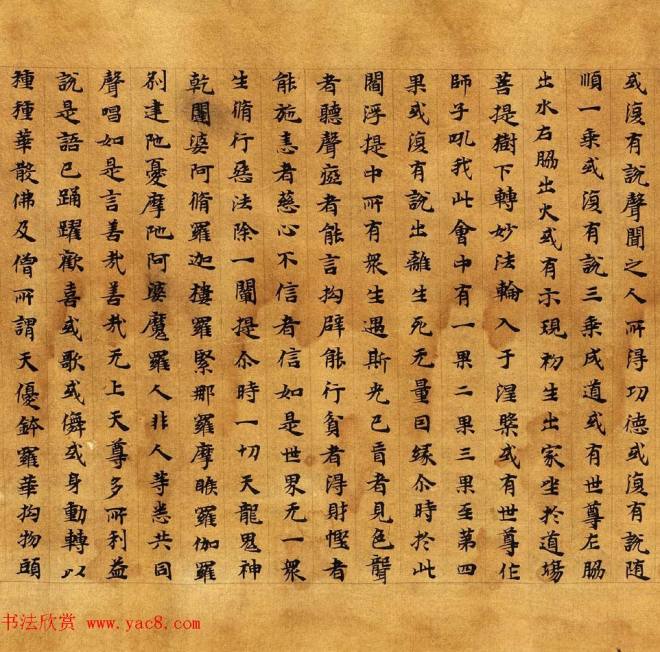 或復有說聲聞之人所得功德或復有說隨
順一乘或復有說三乘成道或有世尊左脇
出水右脇出火或有示現初生出家坐於道場
菩提樹下轉妙法輪入于涅槃或有世尊作
師子吼我此會中有一果二果三果至第四
果或復有說出離生死无量因緣尒時於此
閻浮提中所有衆生遇斯光已盲者見色聾
者聽聲瘂者能言拘躃能行貧者得財慳者
能施恚者慈心不信者信如是世界无一衆
生脩行惡法除一闡提尒時一切天龍鬼神
乾闥婆阿脩羅迦樓羅緊那羅摩睺羅伽羅
剎建陁憂摩陁阿婆魔羅人非人等悉共同
聲唱如是言善哉善哉无上天尊多所利益
說是語已踊躍歡喜或歌或儛或身動轉以
種種華散佛及僧所謂天優鉢羅華拘物頭
书法欣赏 www.yac8.com